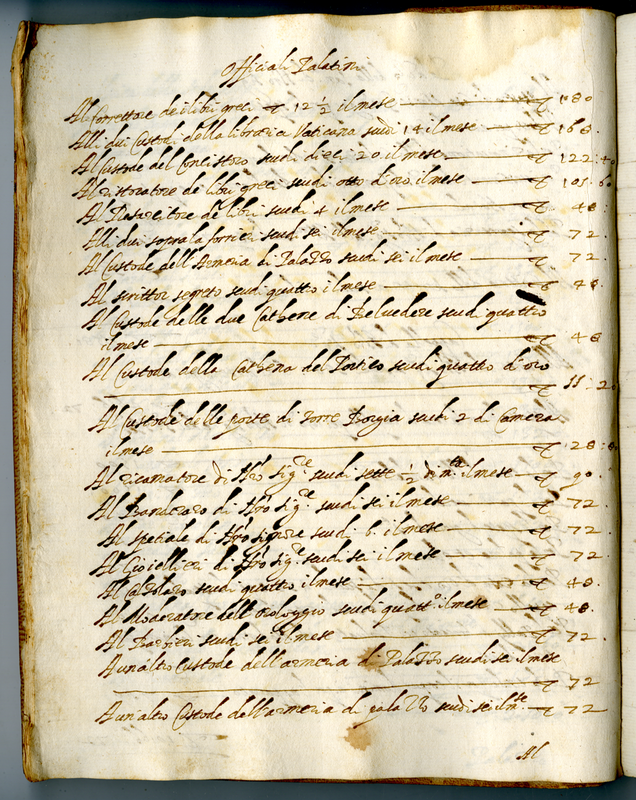 Officiali Palatini
Al Correttore dei libri greci ▽ 12 ½ il mese — ▽ 180
Alli dui Custodi della libraria Vaticana scudi 14 il mese — ▽ 168.
Al Custode del Concistoro scudi dieci 20 il mese — ▽ 122:40
Al ristoratore de libri greci scudi otto d'oro il mese — ▽ 105:60
Al de libri scudi 4 il mese — ▽ 48:
Alli dui sopra la forrieri scudi sei il mese — ▽ 72
Al Custode dell'Armeria di Palazzo scudi sei il mese — ▽ 72.
Al scrittor segreto scudi quattro il mese — ▽ 48.
Al Custode delle due Cathene di Belvedere scudi quattro
il mese — ▽ 48
Al Custode della Cathena del Portico scudi quattro d'oro
— ▽ 55:20
Al Custode delle porte di Torre Borgia scudi 2 di Camera
il mese — ▽ 28:80
Al ricamatore di Nro Sigre scudi sette ½ di mta il mese — ▽ 90.
Al di Nro Sigre scudi sei il mese — ▽ 72.
Al spetiale di Nro Signore scudi 6. il mese — ▽ 72.
Al Gioiellieri di Nro Sigre scudi sei il mese — ▽ 72
Al Calzolaro scudi quattro il mese — ▽ 48
Al Moderatore dell'orologgio scudi quatto il mese — ▽ 48.
Al Barbieri scudi sei il mese — ▽ 72
A un altro Custode dell'armeria di Palazzo scudi sei il mese
— ▽ 72
A un'altro Custode dell'armeria di palazzo scudi sei il mse — ▽ 72
Al